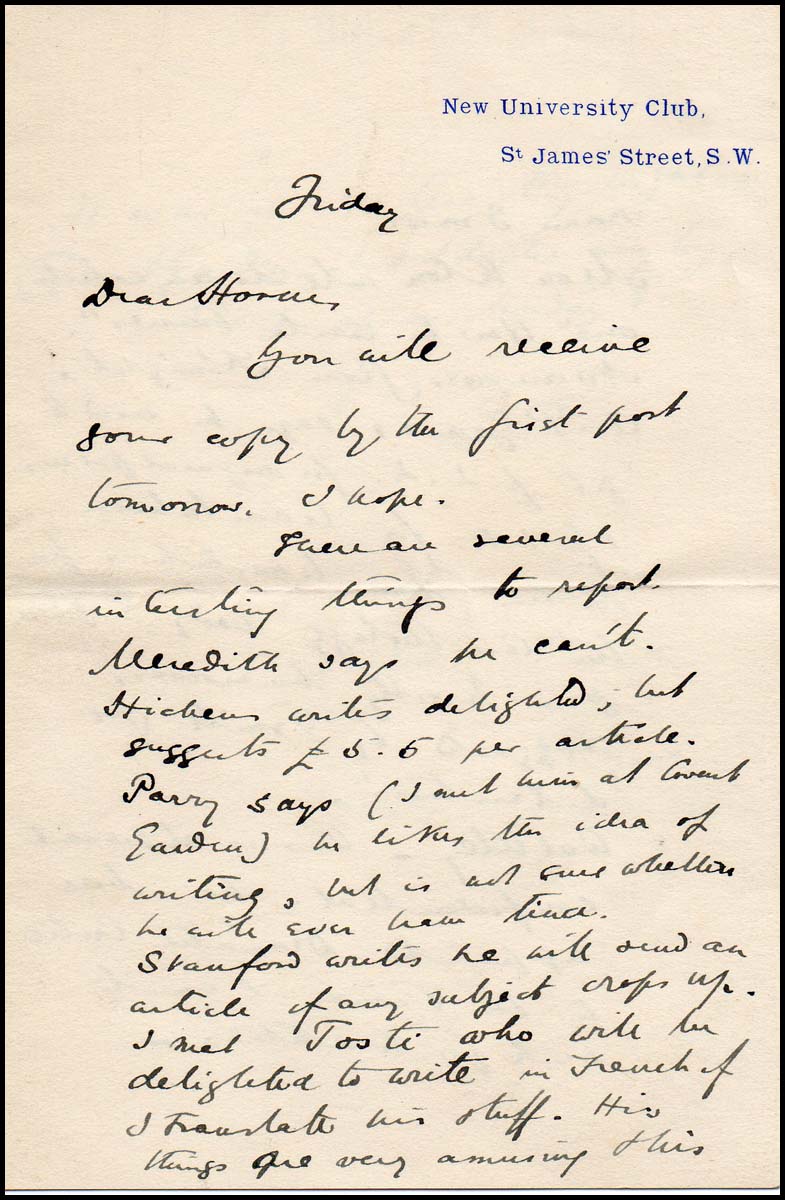 New University Club,
St James' Street, S.W.
Friday
Dear
You will receive
some copy by the first post
tomorrow. I hope.
There are several
interesting things to report.
Meredith says he can't.
Hichens writes delighted, but
suggests £5.5 per article.
Parry says (I met him at Covent
Garden) he likes the idea of
writing, but is not sure whether
he will ever have time.
Stanford writes he will send an
article if any subject crops up.
I met Tosti who will be
delighted to write in French if
I translate his stuff. His
things are very amusing this